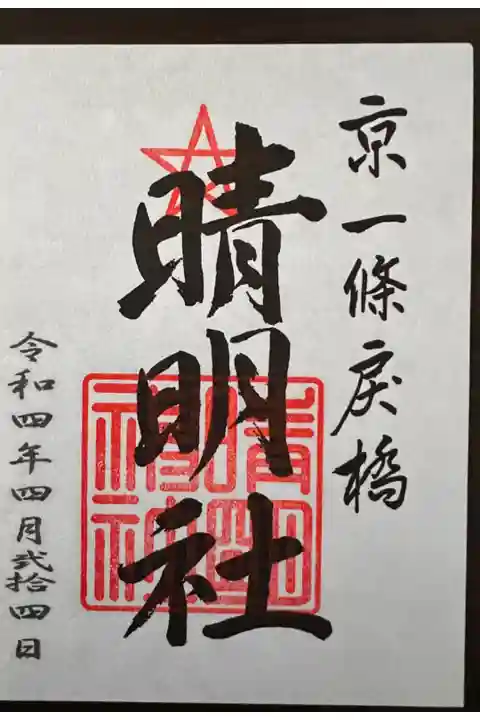 京一條戻橋
晴明社
晴明神社
令和四年四月弐拾四日